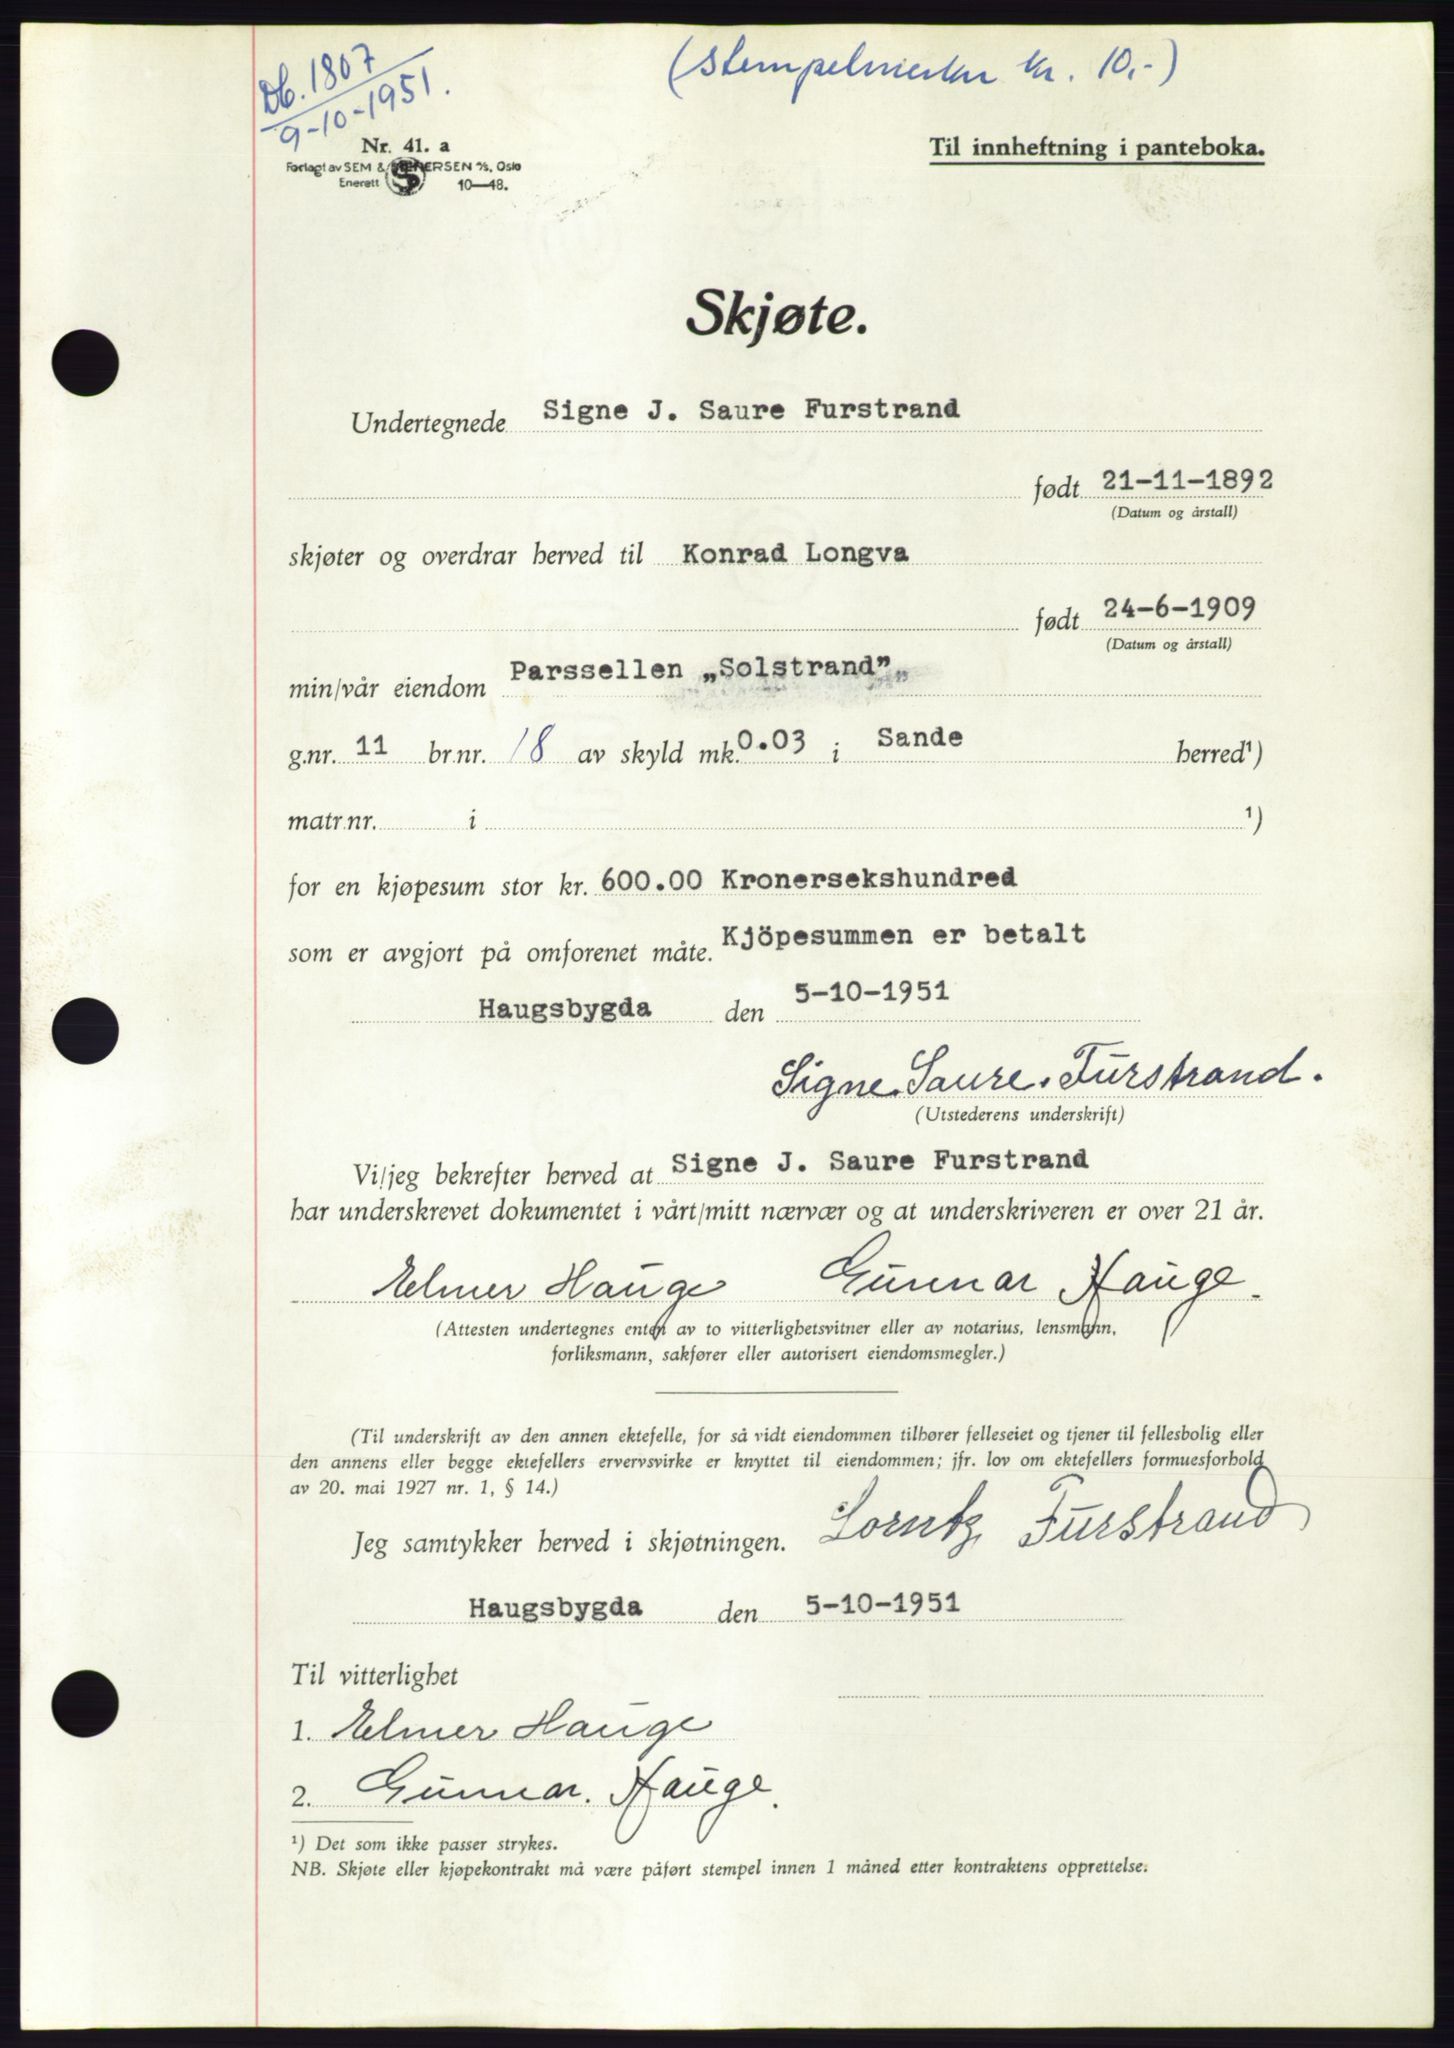 Db. 1807
9-10-1951.
(stempelmerke kr. 10,-)
Nr. 41. a
Forlagt av SEM & STENERSEN A/S, Oslo
Enerett 10—48.
Til innheftning i panteboka.
Skjøte.
Undertegnede Signe J. Saure Furstrand
født 21-11-1892
(Datum og årstall)
skjøter og overdrar herved til Konrad Longva
født 24-6-1909
(Datum og årstall)
min/vår eiendom Parssellen „Solstrand”
g.nr. 11 br.nr. 18 av skyld mk. 0.03 i Sande herred¹)
matr.nr. i ¹)
for en kjøpesum stor kr. 600.00 Kronersekshundred
som er avgjort på omforenet måte. Kjöpesummen er betalt
Haugsbygda den 5-10-1951
Signe Saure Furstrand.
(Utstederens underskrift)
Vi/jeg bekrefter herved at Signe J. Saure Furstrand
har underskrevet dokumentet i vårt/mitt nærvær og at underskriveren er over 21 år.
Elmer Hauge Gunnar Hauge.
(Attesten undertegnes enten av to vitterlighetsvitner eller av notarius, lensmann,
forliksmann, sakfører eller autorisert eiendomsmegler.)
(Til underskrift av den annen ektefelle, for så vidt eiendommen tilhører felleseiet og tjener til fellesbolig eller
den annens eller begge ektefellers ervervsvirke er knyttet til eiendommen; jfr. lov om ektefellers formuesforhold
av 20. mai 1927 nr. 1, § 14.)
Jeg samtykker herved i skjøtningen. Lorntz Furstrand
Haugsbygda den 5-10-1951
Til vitterlighet
1. Elmer Hauge
2. Gunnar. Hauge.
¹) Det som ikke passer strykes.
NB. Skjøte eller kjøpekontrakt må være påført stempel innen 1 måned etter kontraktens opprettelse.